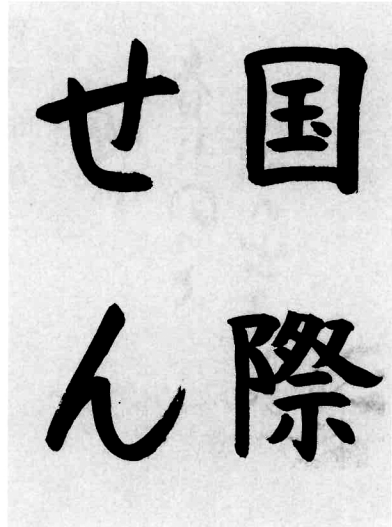 国際
せん